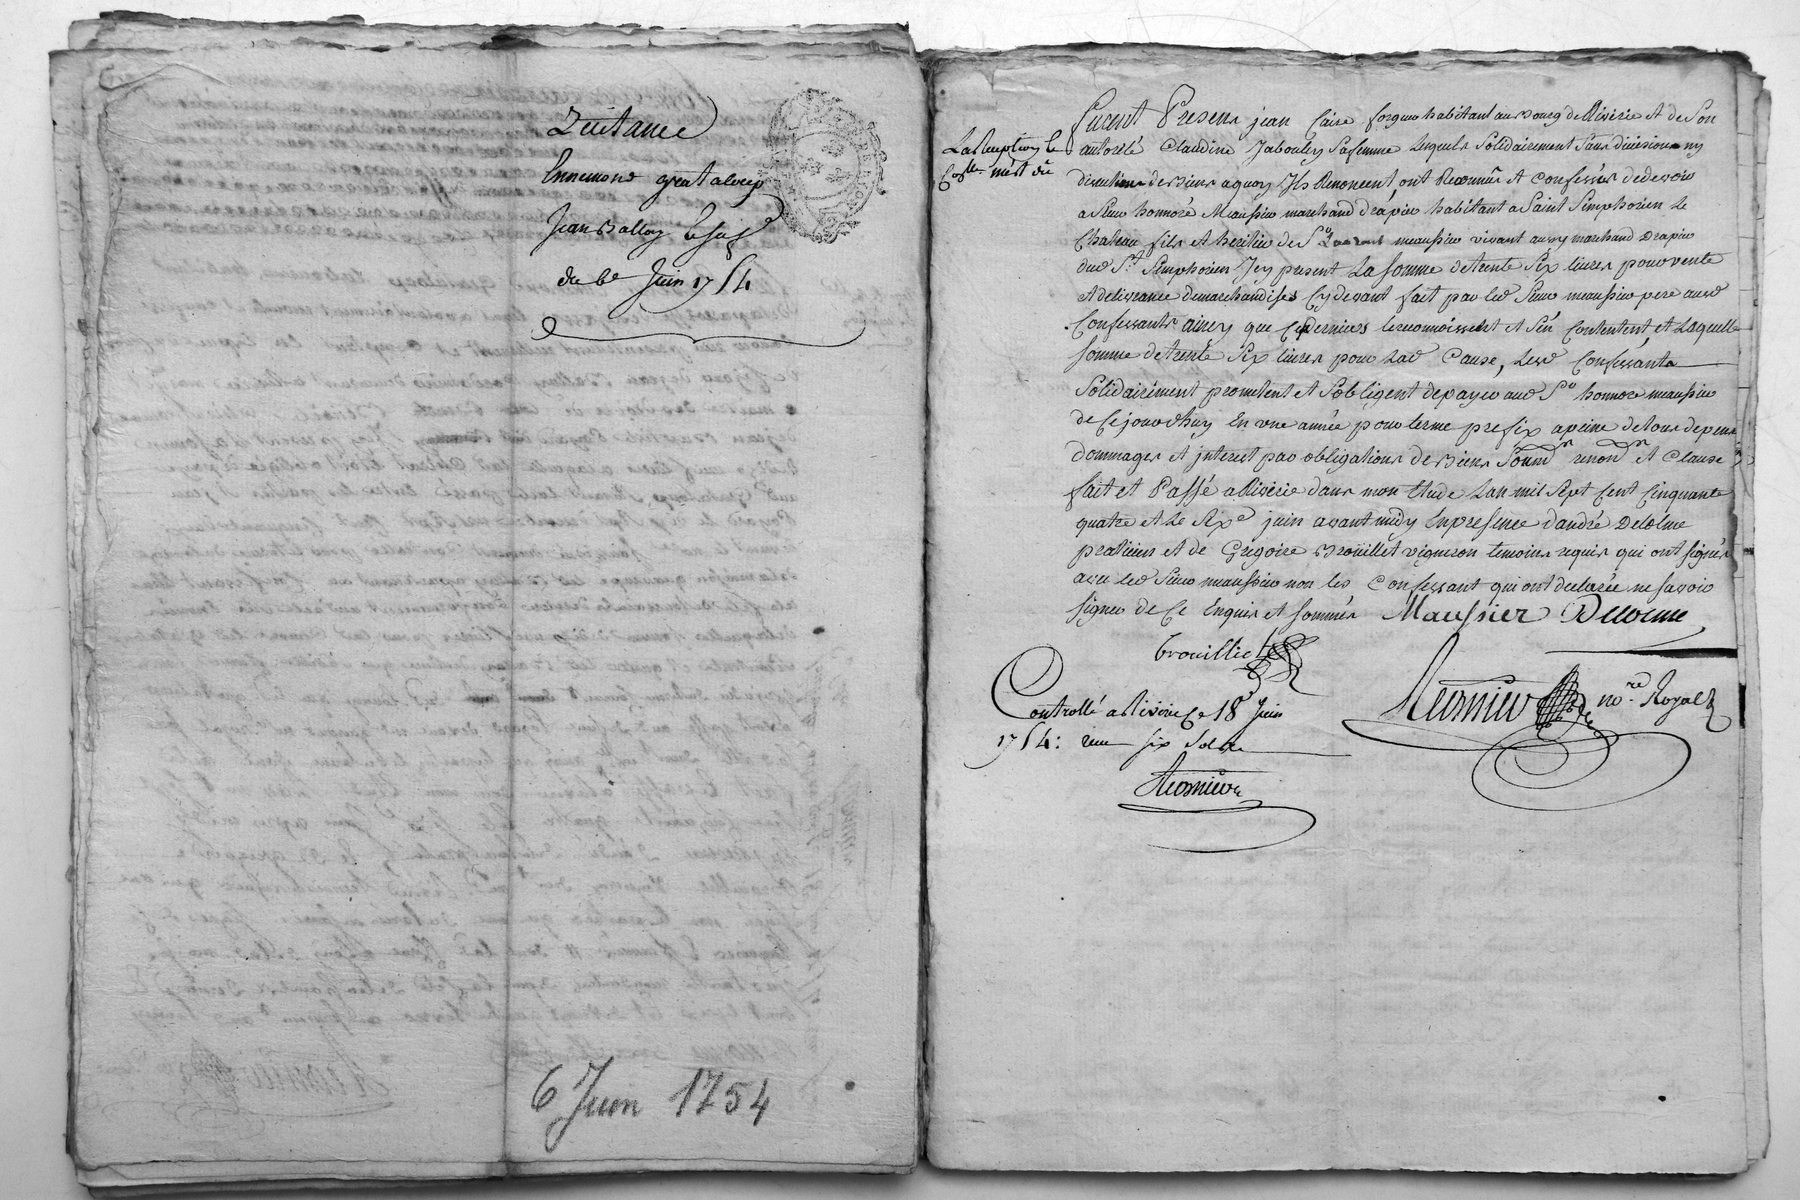 Quittance
Ennemond
Jean Balloy
du 6e Juin 1754
6 Juin 1754
La Reception le
Furent Presens jean Caire forgeur habitant au Bourg de Riverie et de Son
autorité Claudine Jaboulley Sa femme Lesquels Solidairement Sans division ny
discution de Biens a quoy Ils Renoncent, ont Reconnus et Confessés de devoir
a Sieur honnoré Maussier marchand drapier habitant a Saint Simphorien Le
Chateau fils et héritier de Sr Laurent maussier vivant aussy marchand Drapier
dud St Simphorien Icy present La Somme de trente Six livres pour vente
et delivrance de marchandises Cy devant fait par led Sieur maussier pere aux
Confessants ainsy que Ces derniers le reconnoissent et S'en Contentent, et Laquelle
Somme de trente Six livres pour lad Cause, Lesd Confessants
Solidairement promettent et S'obligent de payer aud Sr honnoré maussier
de Ce jourd'huy En une année pour terme prefix a peine de tous depens
dommages et interest par obligations de Biens Soumn renonn et Clause
fait et Passé a Riverie dans mon Etude Lan mil Sept Cent Cinquante
quatre et Le Sixe juin avant midy En presence d'andré Delolme
praticien et de Gregoire Brouillet vigneron temoins requis qui ont signés
avec led Sieur maussier non les Confessant qui ont declarée ne savoir
signer de Ce Enquis et sommés Maussier Delolme
brouilliet
Controllé a Riverie Ce 18 Juin
nore Royal
1754: reçu six Sols